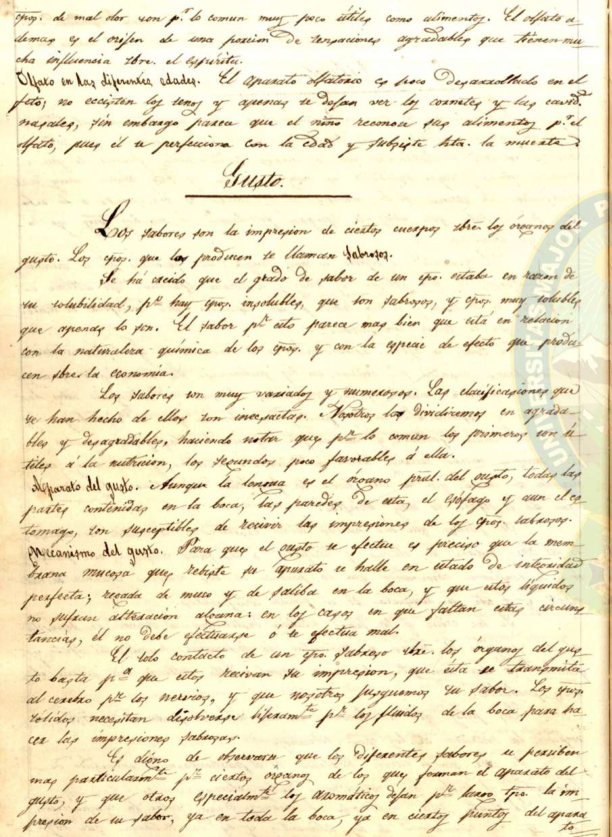 cpos. de mal olor son pr. lo comun muy poco útiles como alimentos. El olfato a
demas es el orijen de una porcion de sensaciones agradables que tienen mu
cha influencia sbre. el espiritu.
Olfato en las diferentes edades. El aparato olfatorio es poco desarrollado en el
feto; no eccisten los senos y apenas se dejan ver los cornetes y las cavids.
nasales, sin embargo parece que el niño reconoce sus alimentos pr. el
olfato, pues él se perfecciona con la edad y subsiste hta. la muerte
Gusto.
Los sabores son la impresion de ciertos cuerpos sbre. los órganos del
gusto. Los cpos. que los producen se llaman sabrosos.
Se há creido que el grado de sabor de un cpo. estaba en razon de
su solubilidad, pr. hay cpos. insolubles, que son sabrosos, y cpos. muy solubles
que apenas lo son. El sabor pr. esto parece mas bien que está en relacion
con la naturaleza química de los cpos. y con la especie de efecto que produ
cen sbre. la economia.
Los sabores son muy variados y numerosos. Las clasificasiones que
se han hecho de ellos son inecsactas. Nosotros los dividiremos en agrada
bles y desagradables, haciendo notar que pr. lo comun los primeros son ú
tiles á la nutricion, los segundos poco favorables á ella.
Aparato del gusto. Aunque la lengua es el órgano pral. del gusto, todas las
partes contenidas en la boca, las paredes de esta, el esófago y aun el es
tómago, son susceptibles de recivir las impresiones de los cpos. sabrosos.
Mecanismo del gusto. Para que el gusto se efectue es preciso que la mem
brana mucosa que rebiste su aparato se halle en estado de integridad
perfecta; regada de muco y de saliba en la boca, y que estos líquidos
no sufran alteracion alguna: en los casos en que faltan estas circuns
tancias, él no debe efectuarse ó se efectua mal.
El solo contacto de un cpo. sabroso sbre. los órganos del gus
to basta pa. que estos recivan su impresion, que ésta se transmita
al cerebro pr. los nervios, y que nosotros jusguemos su sabor. Los cpos.
solidos necesitan disolverse lijeramte. pr. los fluidos de la boca para ha
cer las impresiones sabrosas.
Es digno de observarse que los diferentes sabores se persiben
mas particularmte. pr. ciertos órganos de los que forman el aparato del
gusto, y que otros especialmte. los aromáticos dejan pr. largo tpo. la im
presion de su sabor, ya en toda la boca, ya en ciertos puntos del apara
to